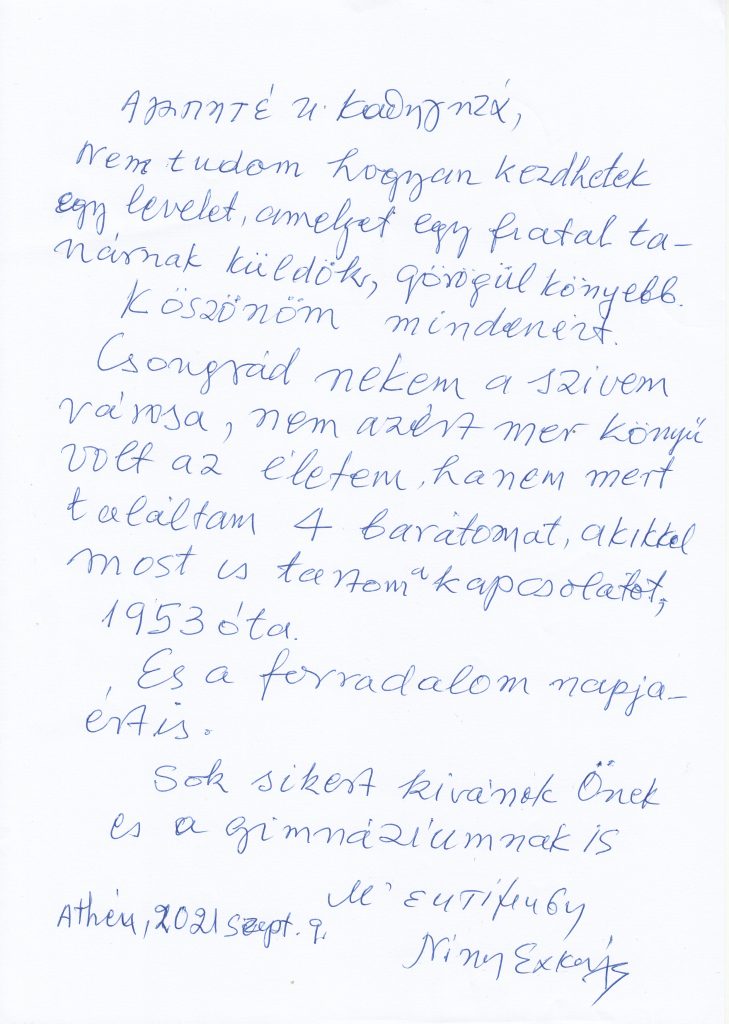 Αγαπητέ κ. καθηγητά,
Nem tudom hogyan kezdhetek
egy levelet, amelyet egy fiatal ta-
nárnak küldök, görögül könyebb.
Köszönöm mindenért.
Csongrád nekem a szivem
városa, nem azért mer könyű
volt az életem, hanem mert
találtam 4 barátomat, akikkel
most is tartom a kapcsolatot,
1953 óta.
És a forradalom napja-
ért is.
Sok sikert kivánok Önek
es a gimnáziumnak is
Μ' εκτίμηση
Athén, 2021 szept. 9.